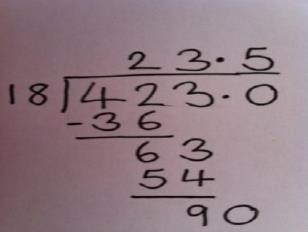 23.5
18)423.0
-36
63
54
90